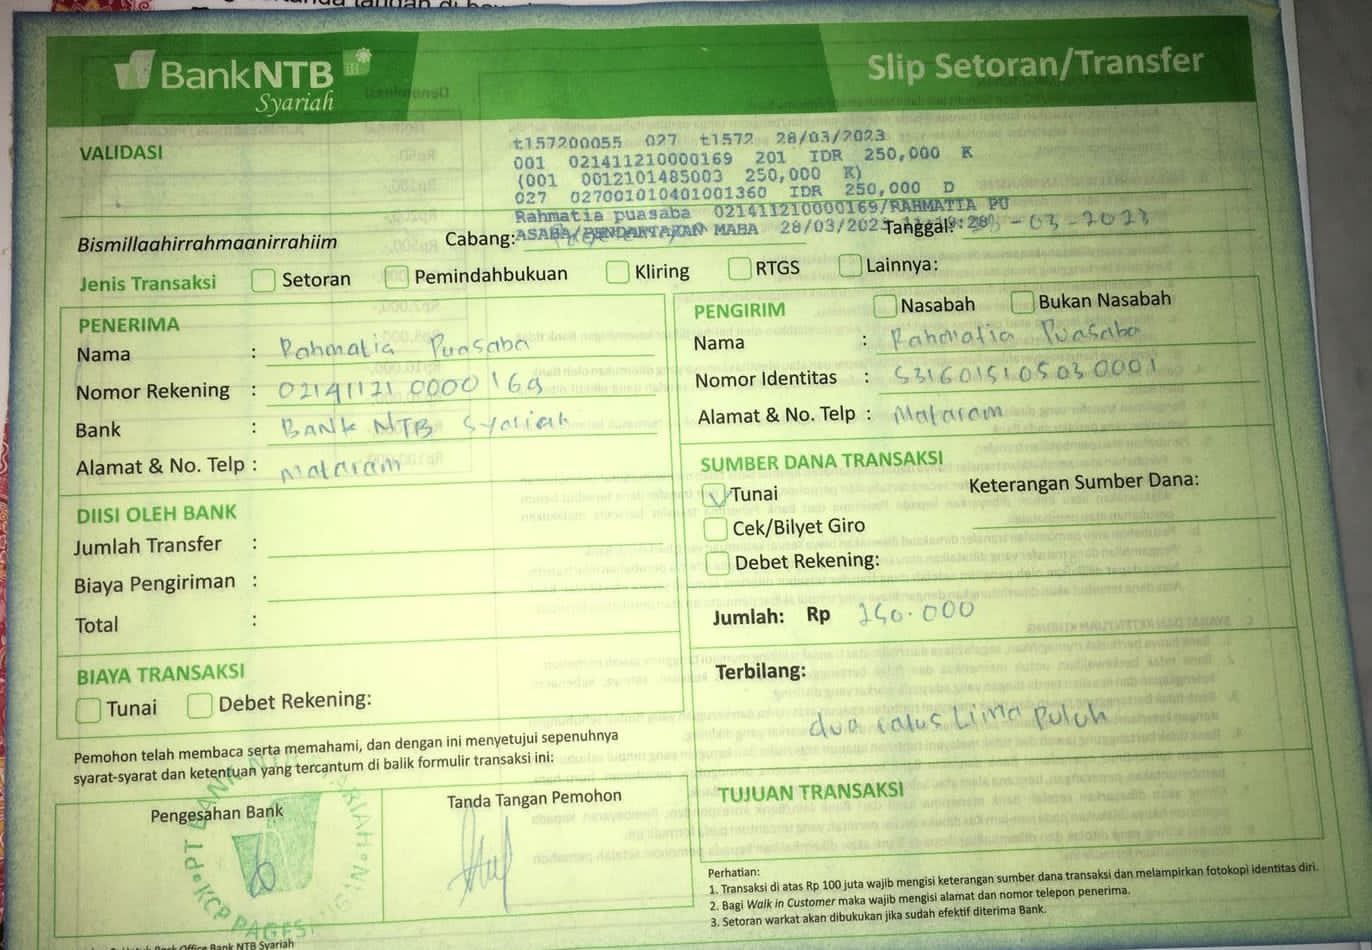 BankNTB
Syariah
Slip Setoran/Transfer
VALIDASI
t157200055 027 t1572 28/03/2023
001 021411210000169 201 IDR 250,000 K
(001 0012101485003 250,000 K)
027 027001010401001360 IDR 250,000 D
Rahmatia puasaba 021411210000169/RAHMATIA PU
ASABA/PENDAFTARAN MABA 28/03/2023
Bismillaahirrahmaanirrahiim
Cabang:
Tanggal: 28-03-2023
Jenis Transaksi Setoran Pemindahbukuan Kliring RTGS Lainnya:
PENERIMA
Nama : Rahmatia Puasaba
Nomor Rekening : 021411210000169
Bank : BANK NTB Syariah
Alamat & No. Telp : Mataram
DIISI OLEH BANK
Jumlah Transfer :
Biaya Pengiriman :
Total :
BIAYA TRANSAKSI
Tunai Debet Rekening:
PENGIRIM Nasabah Bukan Nasabah
Nama : Rahmatia Puasaba
Nomor Identitas : 5316015105030001
Alamat & No. Telp : Mataram
SUMBER DANA TRANSAKSI
Tunai Keterangan Sumber Dana:
Cek/Bilyet Giro
Debet Rekening:
Jumlah: Rp 250.000
Terbilang:
dua ratus Lima Puluh
TUJUAN TRANSAKSI
Pemohon telah membaca serta memahami, dan dengan ini menyetujui sepenuhnya
syarat-syarat dan ketentuan yang tercantum di balik formulir transaksi ini:
Pengesahan Bank
Tanda Tangan Pemohon
PT BANK NTB SYARIAH
KCP PAGESANGAN
Perhatian:
1. Transaksi di atas Rp 100 juta wajib mengisi keterangan sumber dana transaksi dan melampirkan fotokopi identitas diri.
2. Bagi Walk in Customer maka wajib mengisi alamat dan nomor telepon penerima.
3. Setoran warkat akan dibukukan jika sudah efektif diterima Bank.
Back Office Bank NTB Syariah